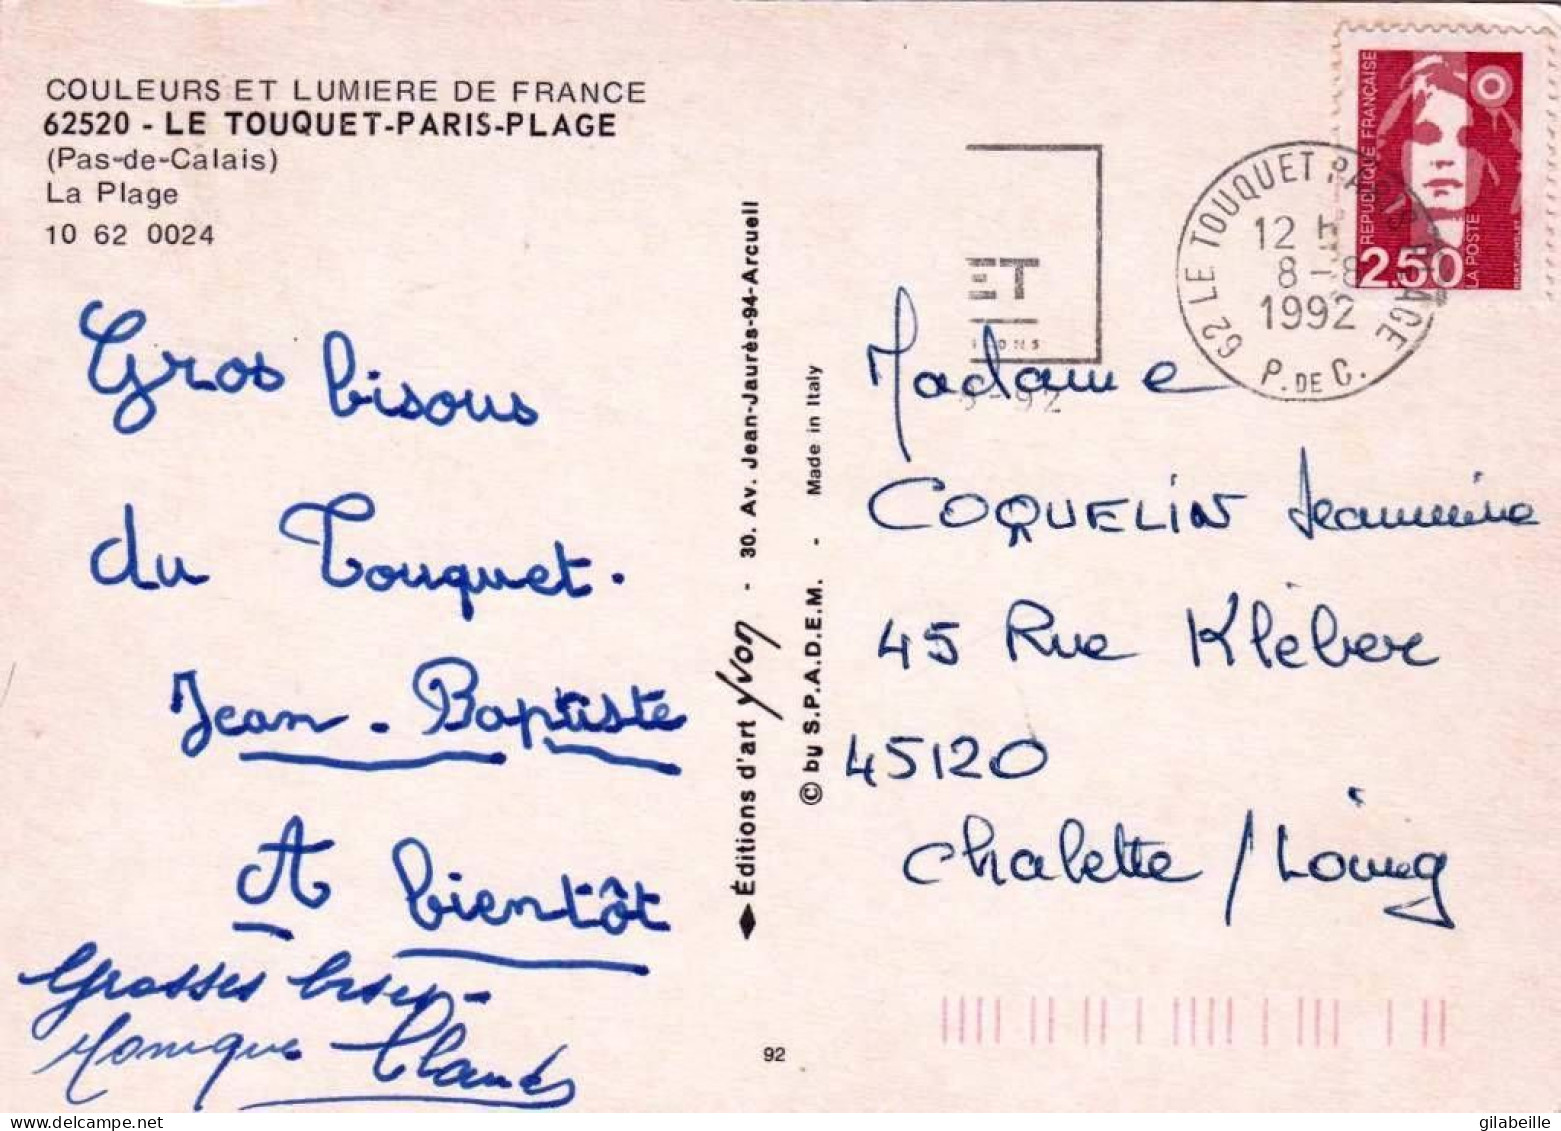 COULEURS ET LUMIERE DE FRANCE
62520 - LE TOUQUET-PARIS-PLAGE
(Pas-de-Calais)
La Plage
10 62 0024
Gros bisous
du Touquet.
Jean-Baptiste
A bientôt
Grosses bises-
Monique Claude
Éditions d'art yvon - 30. Av. Jean-Jaurès-94-Arcueil
© by S.P.A.D.E.M. - Made in Italy
92
ET
62 LE TOUQUET PARIS PLAGE
12 H
8-8
1992
P. DE C.
REPUBLIQUE FRANÇAISE
2.50
LA POSTE
Madame
COQUELIN Jeannine
45 Rue Kléber
45120
Chalette / Loing
gilabeille